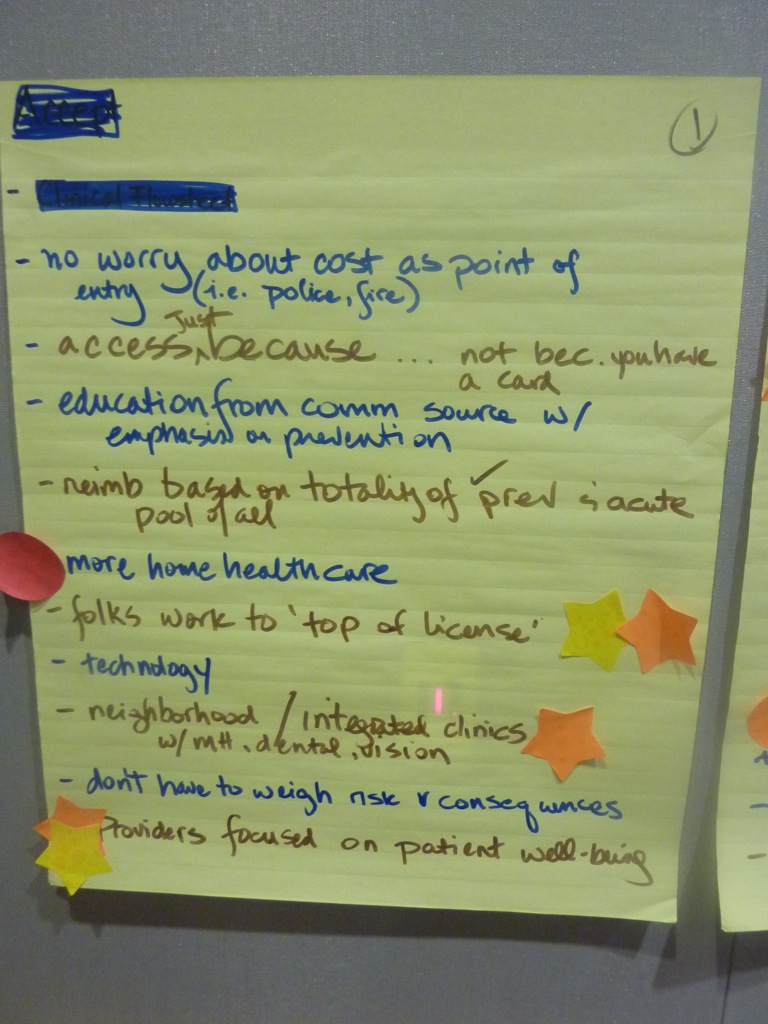 Accept
1
- Clinical Flowsheet
- no worry about cost as point of
entry (i.e. police, fire)
Just
- access, because ... not bec. you have
a card
- education from comm source w/
emphasis on prevention
- reimb based on totality of prev & acute
pool of all
more home health care
- folks work to 'top of license'
- technology
- neighborhood / integrated clinics
w/ MH, dental, vision
- don't have to weigh risk v consequences
Providers focused on patient well-being